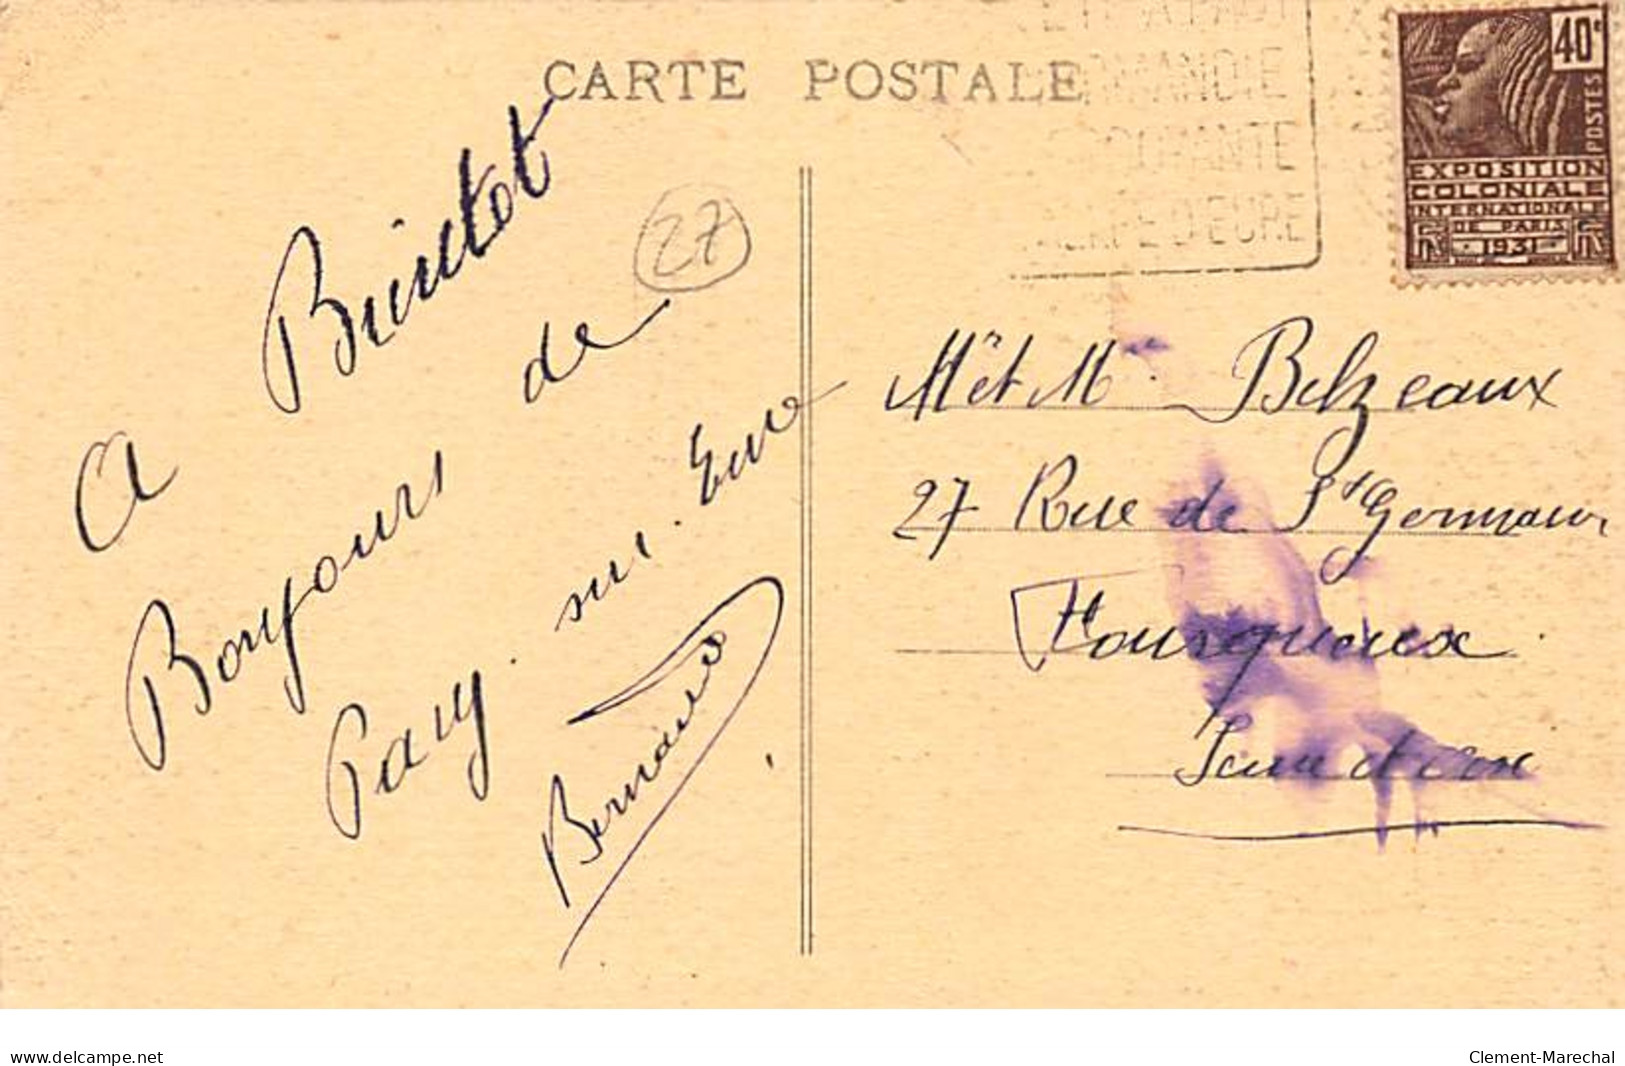 CARTE POSTALE
40c
POSTES
EXPOSITION
COLONIALE
INTERNATIONALE
DE PARIS
1931
27
A Bientot
Bonjours de
Pacy. sur. Eure
Bernard
Mr et Me Belzeaux
27 Rue de St Germain
Fourqueux
Seine et Oise
delcampe.net
Clement-Marechal